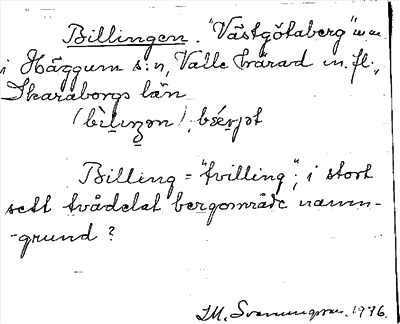 Billingen. "Västgötaberg" m m
i Häggum s:n, Valle härad m. fl.,
Skaraborgs län
(bìlıŋən), bǽrjət
Billing = "tvilling"; i stort
sett tvådelat bergområde namn-
-grund?
M. Svanungsson. 1976.